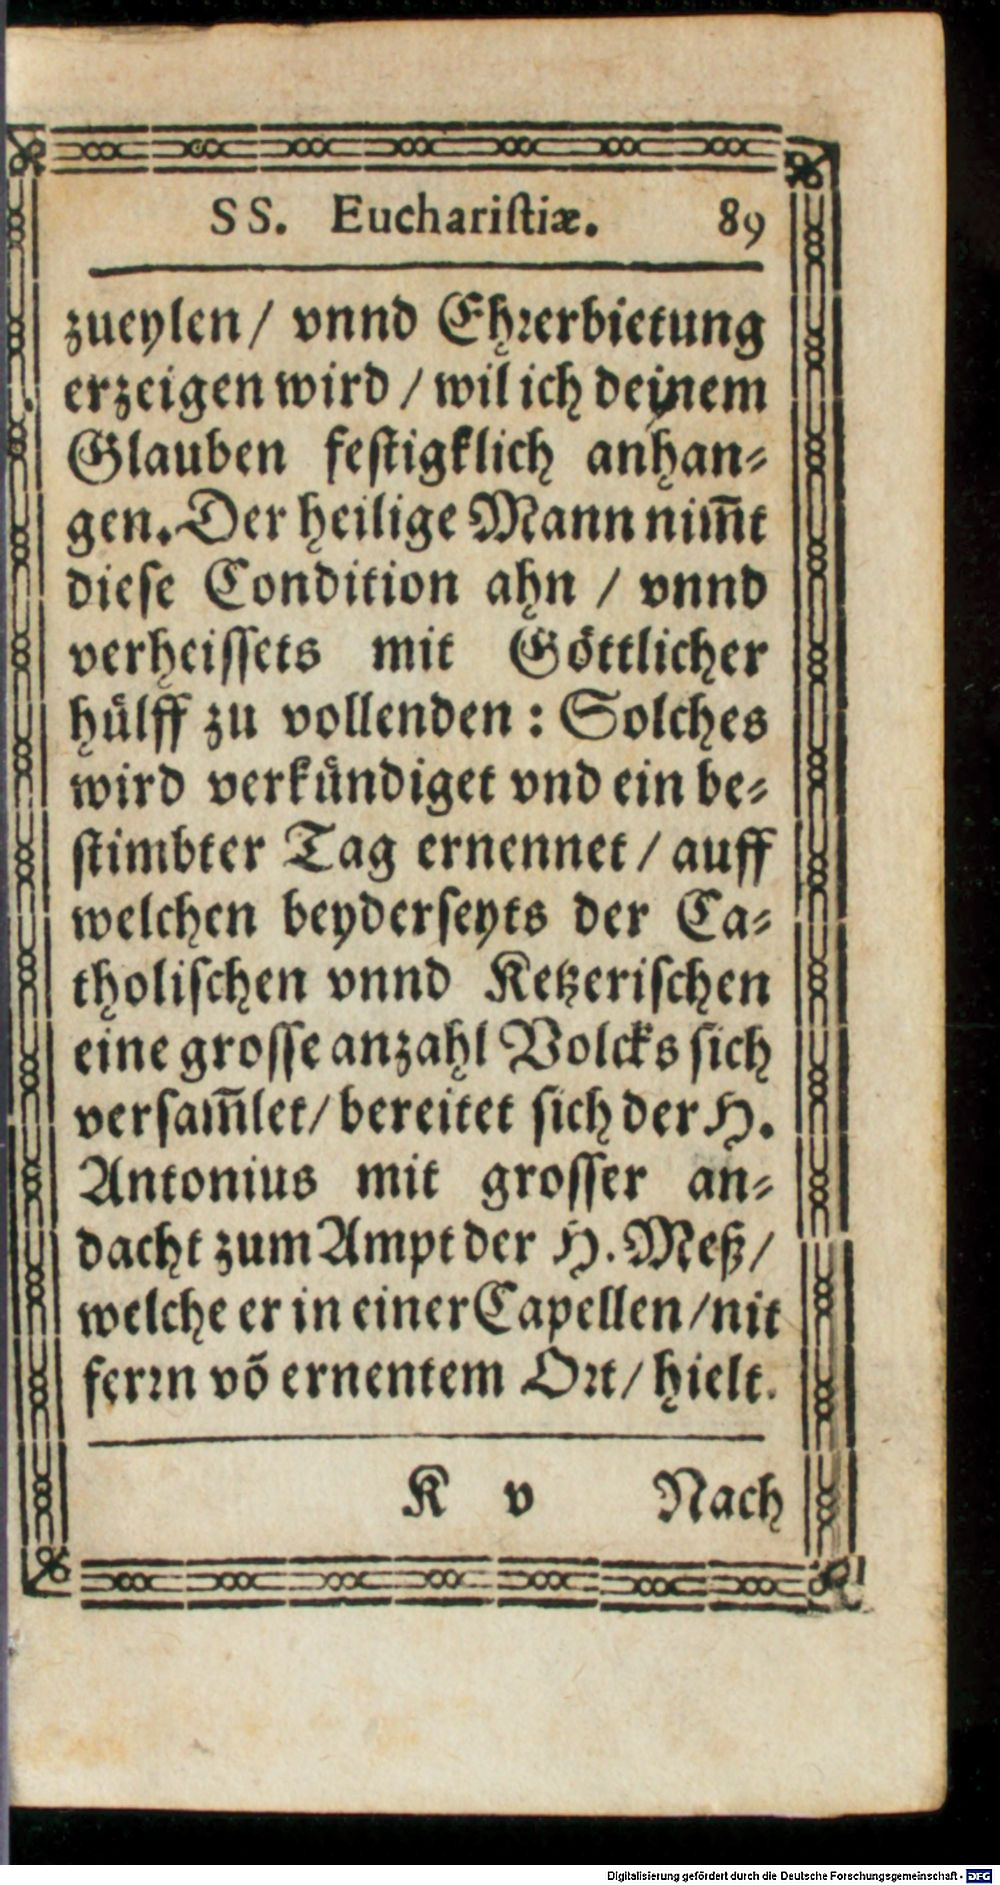 SS. Euchariſtiæ. 89
zueylen / vnnd Ehꝛerbietung
erzeigen wird / wil ich deinem
Glauben feſtigklich anhan⸗
gen. Der heilige Mann nim̅t
dieſe Condition ahn / vnnd
verheiſſets mit Goͤttlicher
huͤlff zu vollenden : Solches
wird verkuͤndiget vnd ein be⸗
ſtimbter Tag ernennet / auff
welchen beyderſeyts der Ca⸗
tholiſchen vnnd Ketzeriſchen
eine groſſe anzahl Volcks ſich
verſam̅let / bereitet ſich der H.
Antonius mit groſſer an⸗
dacht zum Ampt der H. Meß /
welche er in einer Capellen / nit
ferꝛn võ ernentem Oꝛt / hielt.
K v Nach
Digitalisierung gefördert durch die Deutsche Forschungsgemeinschaft - DFG